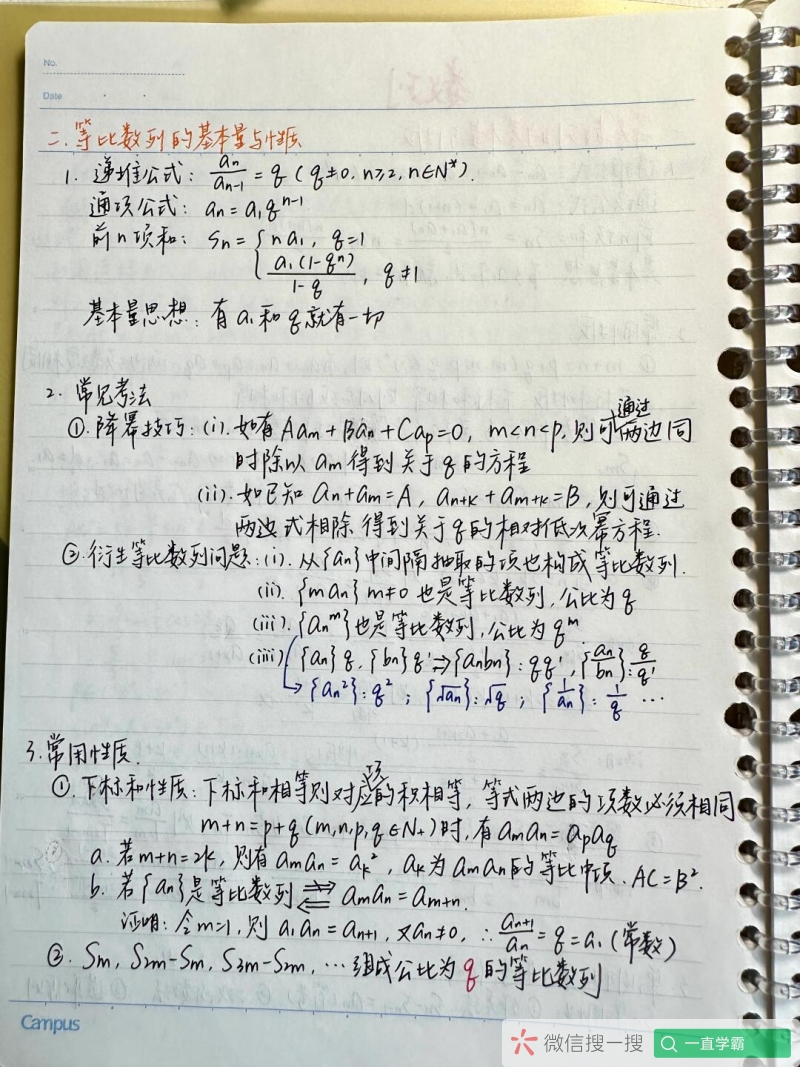 No.
Date
二.等比数列的基本量与性质
1. 递推公式: aₙ/aₙ₋₁ = q (q≠0, n≥2, n∈N*).
通项公式: aₙ=a₁qⁿ⁻¹
前n项和: Sₙ= { na₁, q=1
a₁(1-qⁿ)/(1-q), q≠1
基本量思想: 有a₁和q就有一切
2. 常见考法
①.降幂技巧: (i).如有Aaₘ+Baₙ+Caₚ=0, m<n<p,则可通过两边同
时除以aₘ得到关于q的方程
(ii).如已知aₙ+aₘ=A, aₙ₊ₖ+aₘ₊ₖ=B,则可通过
两边式相除得到关于q的相对低次幂方程.
②.衍生等比数列问题: (i).从{aₙ}中间隔抽取的项也构成等比数列.
(ii).{maₙ} m≠0也是等比数列,公比为q
(iii).{aₙᵐ}也是等比数列,公比为qᵐ.
(iiii) {aₙ}q, {bₙ}q' ⇒{aₙbₙ}: qq', {aₙ/bₙ}: q/q'
→{aₙ²}: q²; {√aₙ}: √q; {1/aₙ}: 1/q …
3.常用性质.
①.下标和性质: 下标和相等则对应项的积相等,等式两边的项数必须相同
m+n=p+q (m,n,p,q∈N₊)时,有aₘaₙ=aₚa_q
a.若m+n=2k,则有aₘaₙ=aₖ², aₖ为aₘaₙ的等比中项. AC=B².
b.若{aₙ}是等比数列 ⇌ aₘaₙ=aₘ₊ₙ.
证明: 令m=1,则a₁aₙ=aₙ₊₁,又aₙ≠0, ∴ aₙ₊₁/aₙ=q=a₁ (常数)
②. Sₘ, S₂ₘ-Sₘ, S₃ₘ-S₂ₘ, …组成公比为q的等比数列
Campus
微信搜一搜 一直学霸